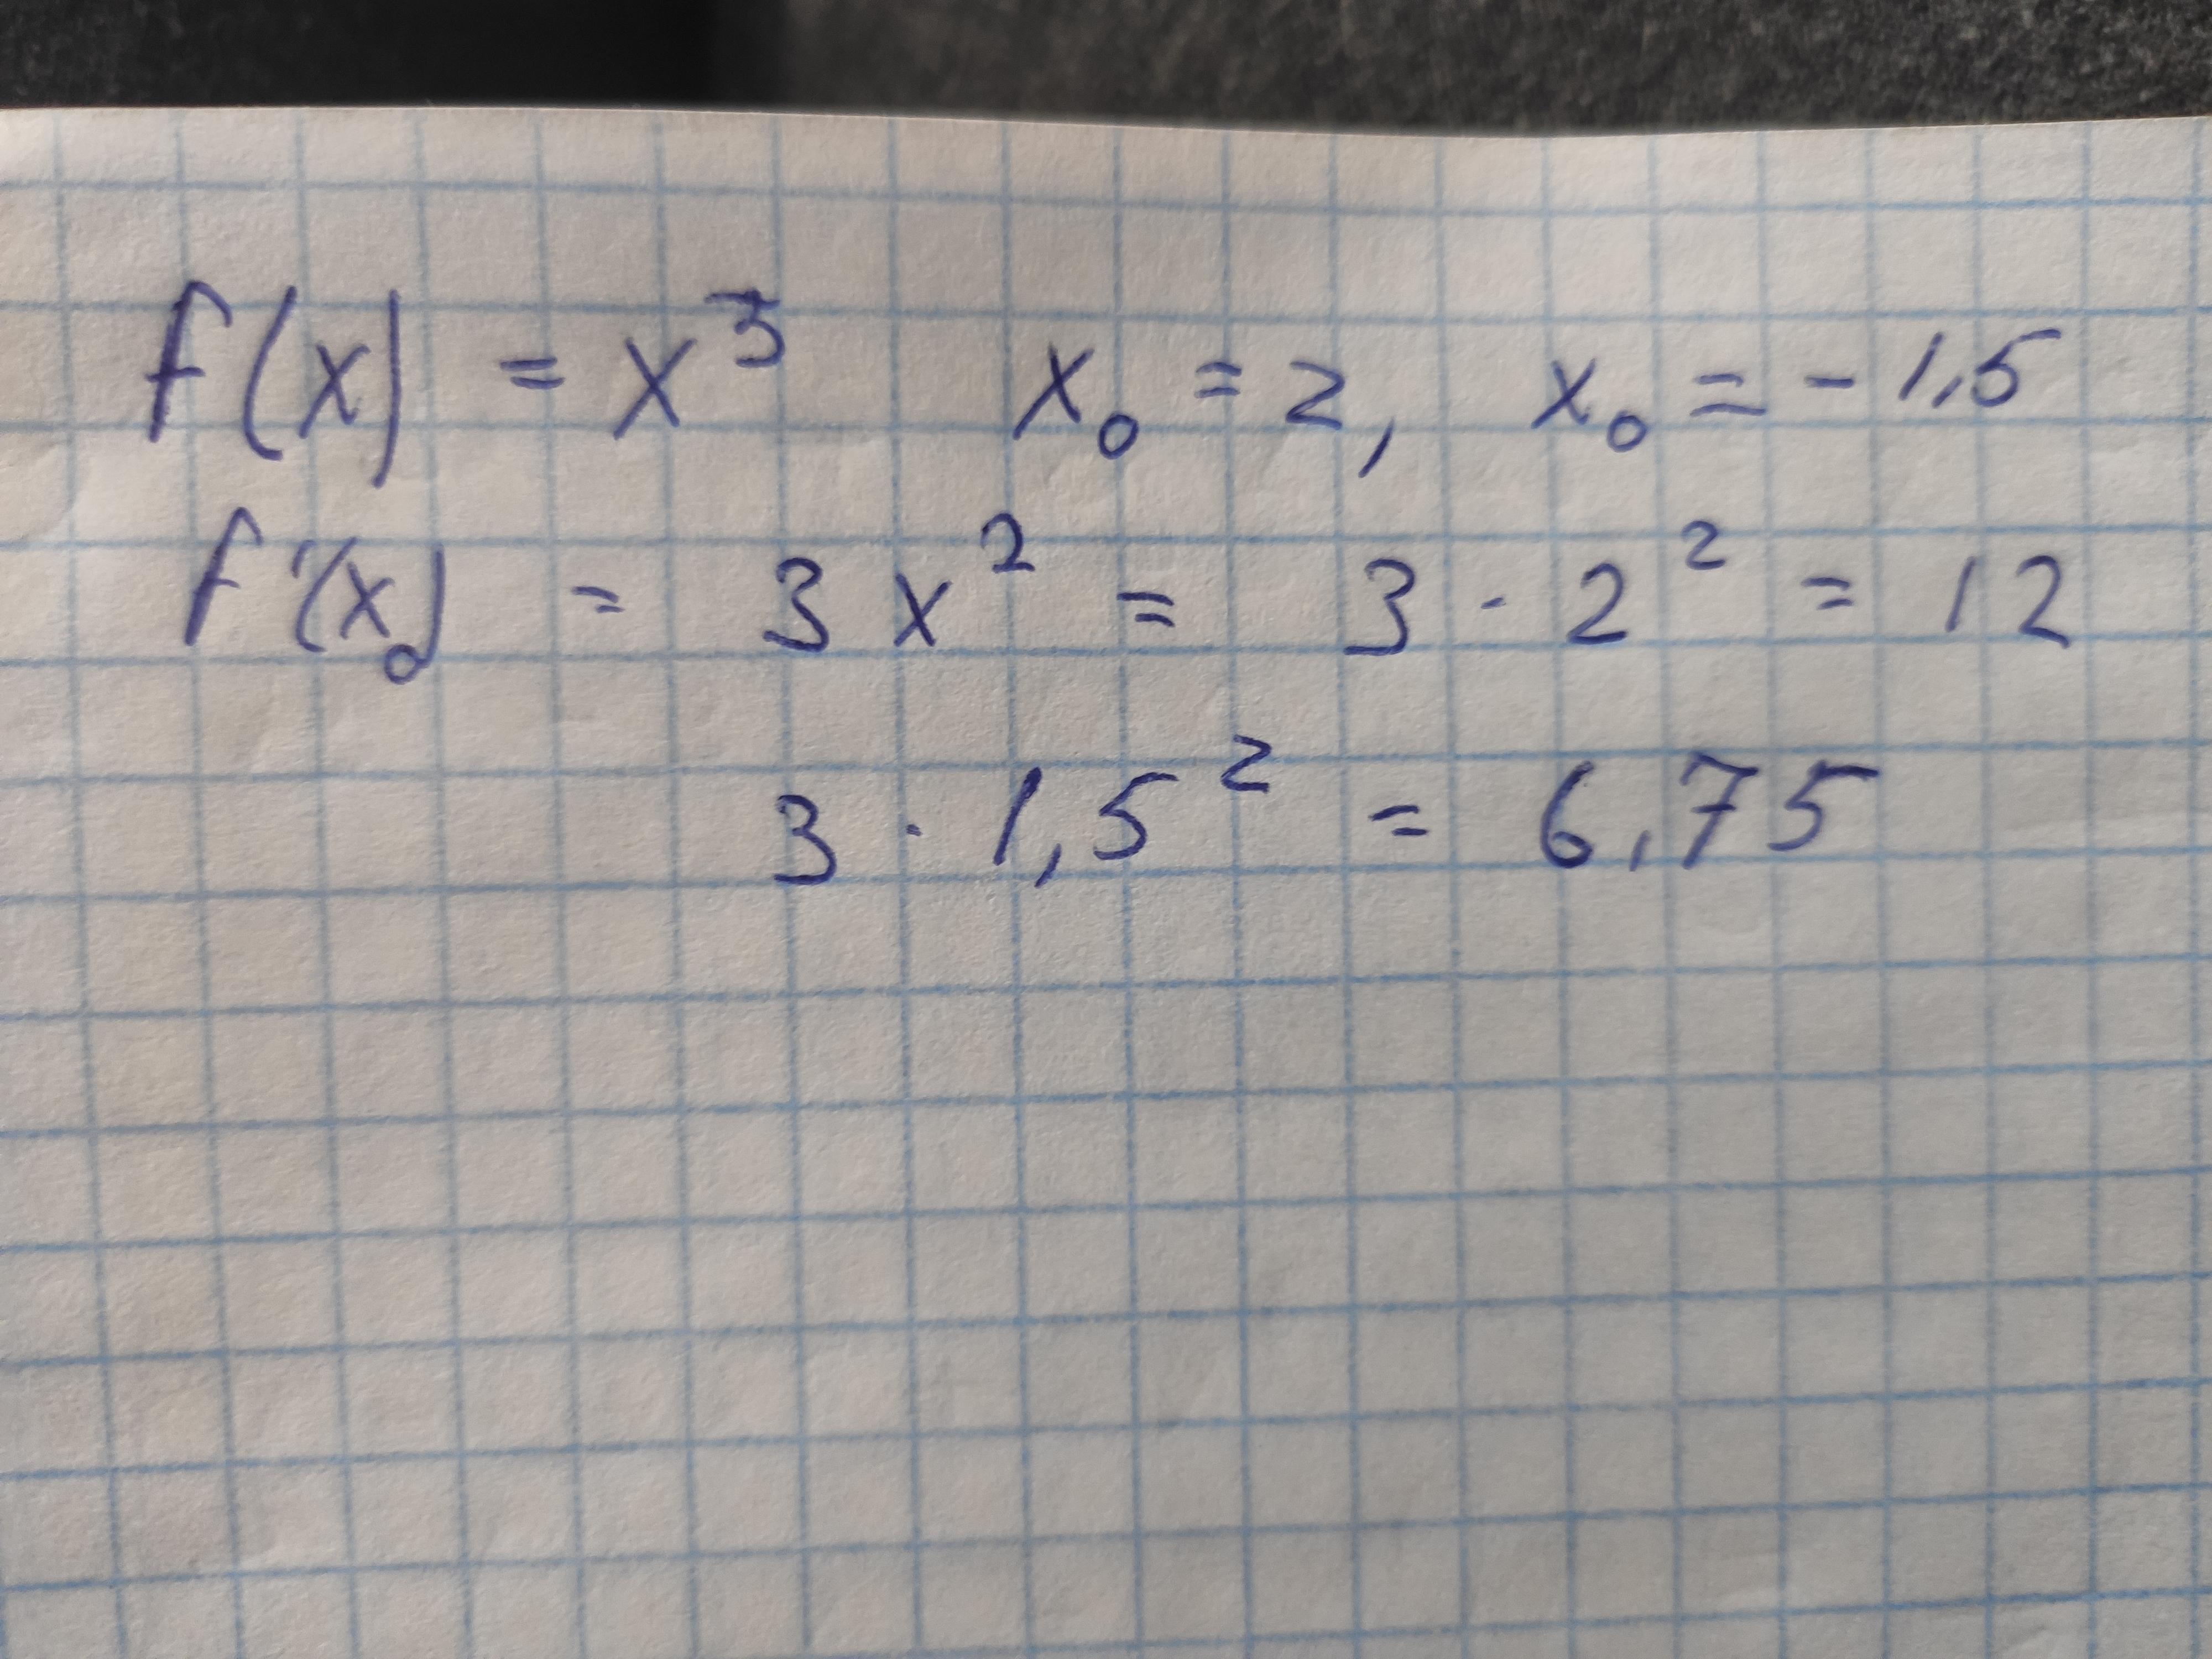 f(x) = x³ x₀ = 2, x₀ = - 1,5
f'(x₀) = 3x² = 3 · 2² = 12
3 · 1,5² = 6,75